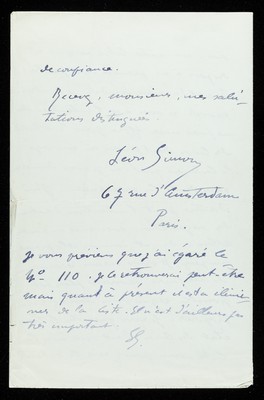 de confiance.
Recevez, monsieur, mes salu-
tations distinguées
Léon Simon
67 rue d'Amsterdam
Paris.
Je vous préviens que j'ai égaré le
No 110. Je le retrouverai peut-être
mais quant à présent il est à élimi-
ner de la liste. Il n'est d'ailleurs pas
très important.
LS